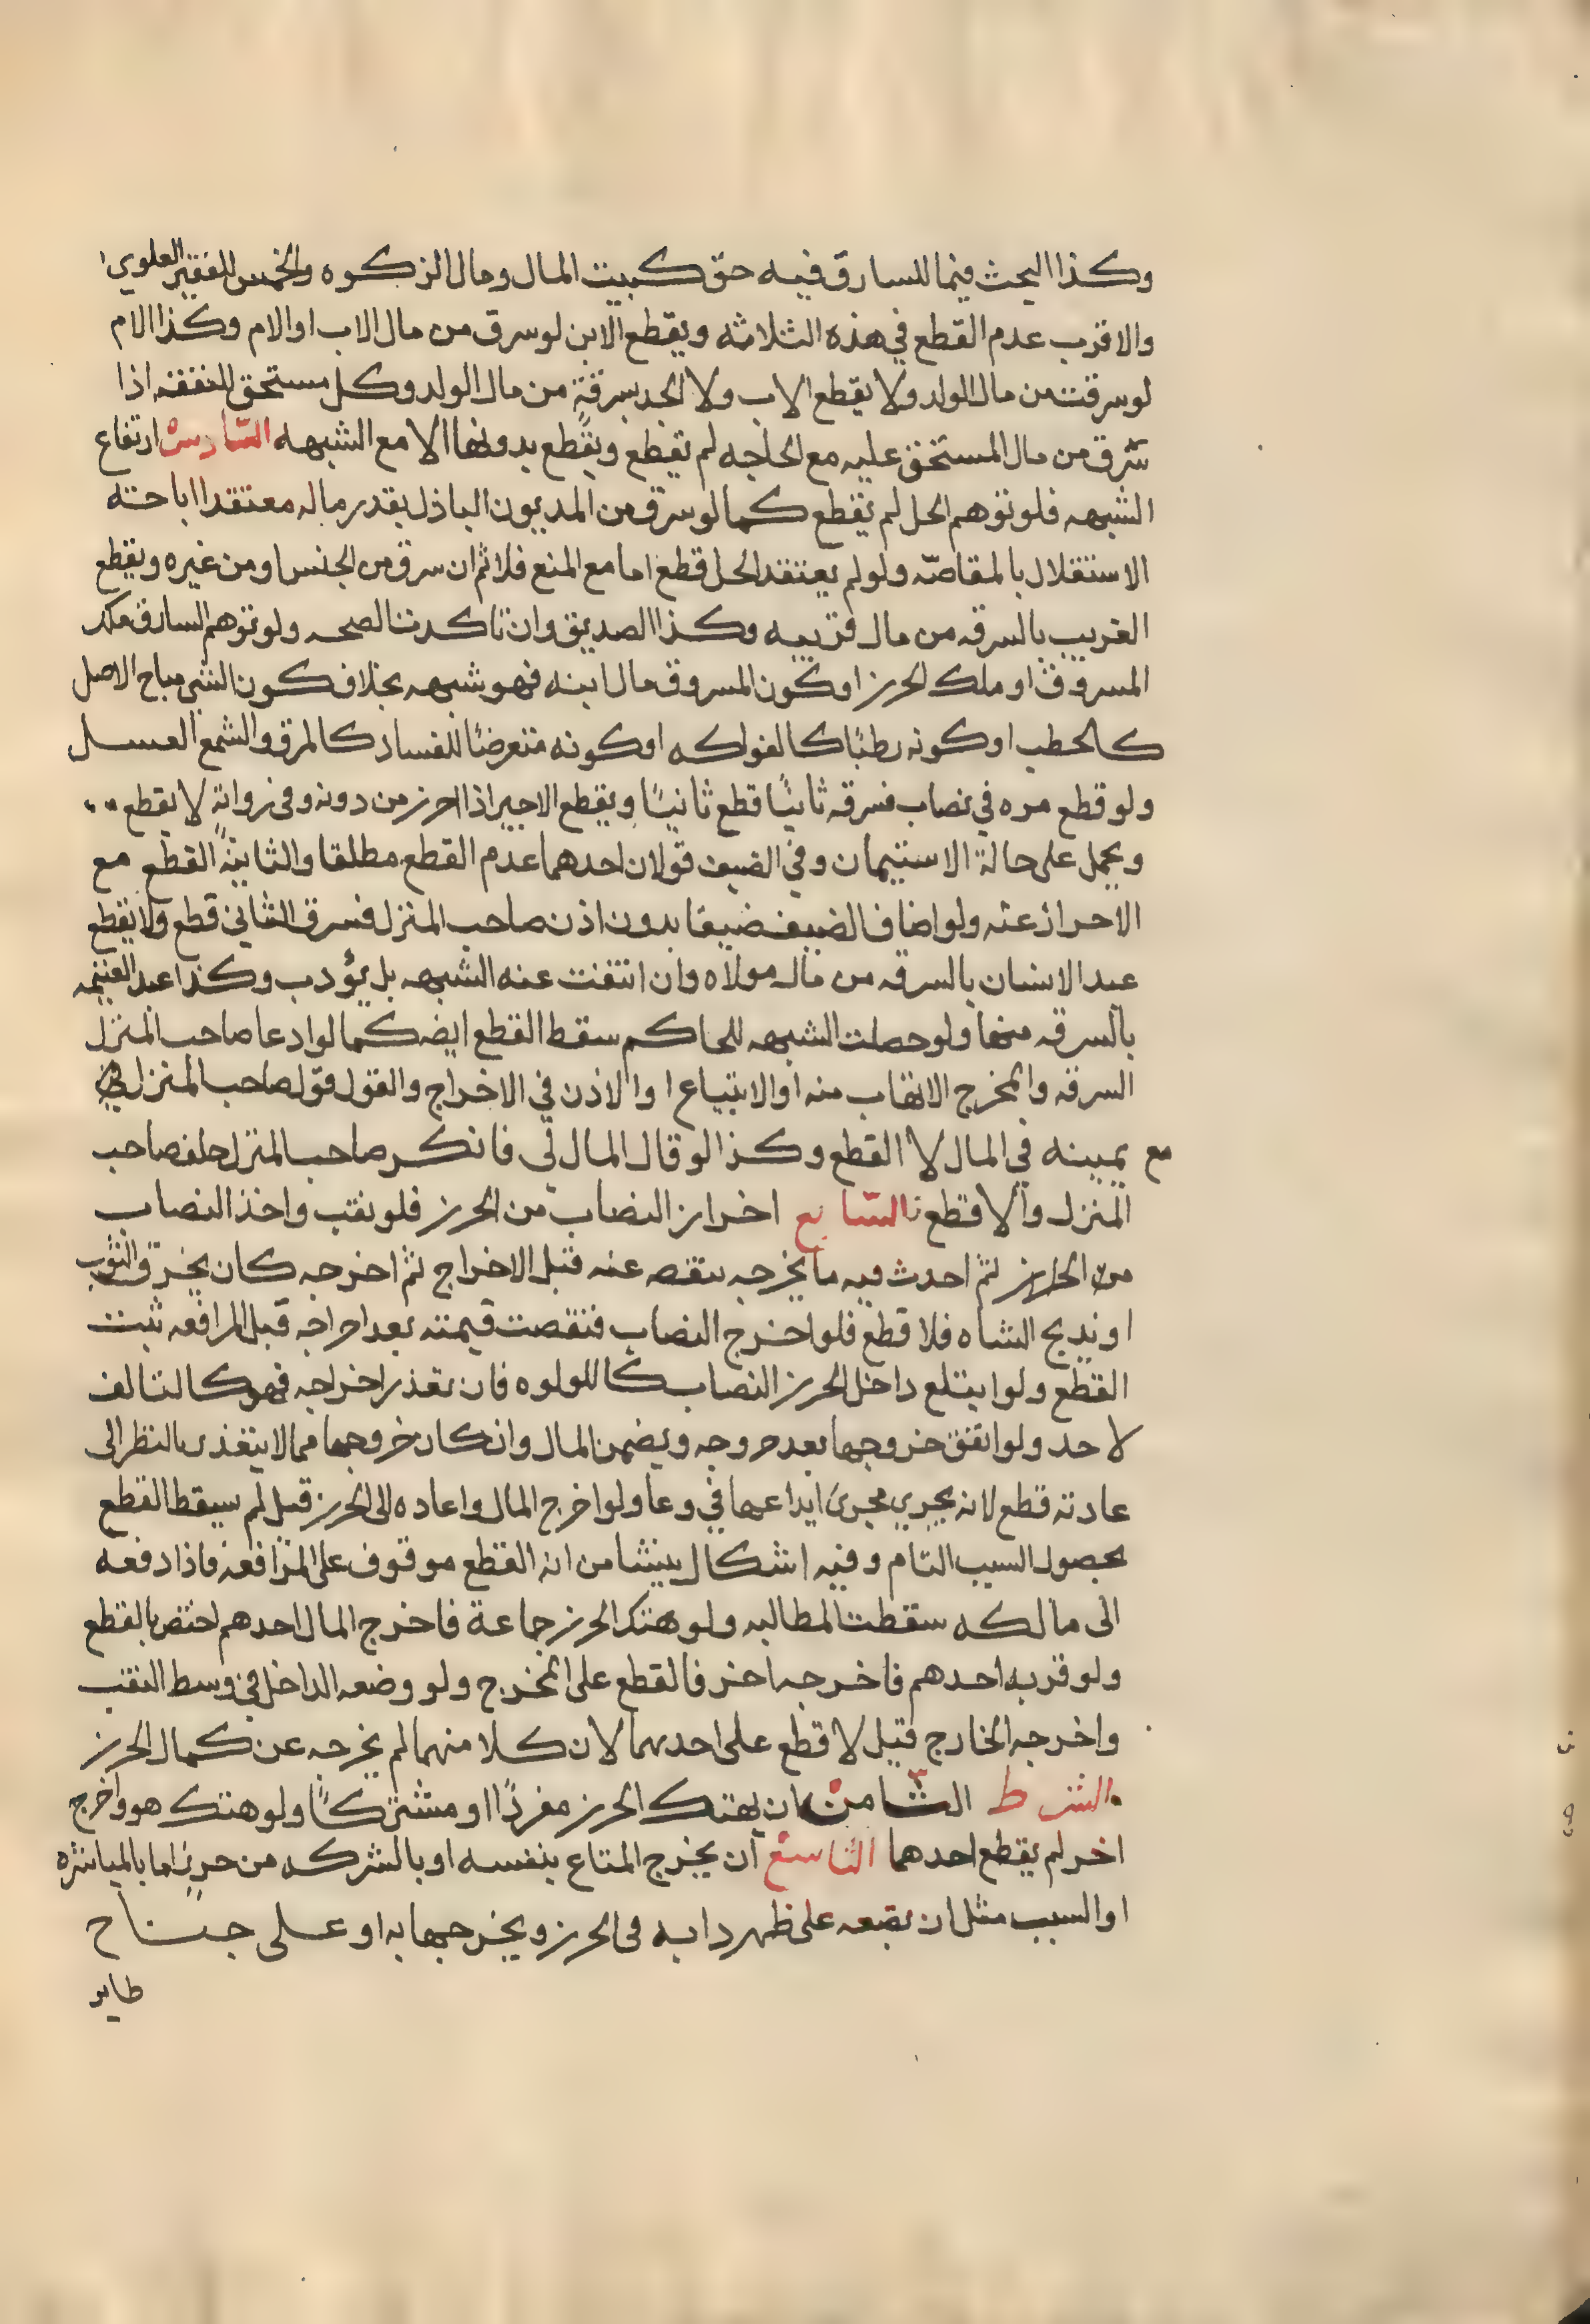 وكذا البحث فيما للسارق فيه حق كبيت المال ومال الزكوه والخمس للفقير العلوي
والاقرب عدم القطع في هذه الثلاثه ويقطع الابن لو سرق من مال الاب او الام وكذا الام
لو سرقت من مال الولد ولا يقطع الاب ولا الجد بسرقة من مال الولد وكل مستحق للنفقه اذا
سرق من مال المستحق عليه مع الحاجه لم يقطع ويقطع بدونها الا مع الشبهه السادس ارتفاع
الشبهه فلو توهم الحل لم يقطع كما لو سرق من المديون الباذل بقدر ماله معتقدا اباحته
الاستقلال بالمقاصّه ولو لم يعتقد الحل قطع اما مع المنع فلا ثم ان سرق من الجنس او من غيره ويقطع
القريب بالسرقه من مال قريبه وكذا الصديق وان تاكدت الصحه ولو توهم السارق ملك
المسروق او ملك الحرز او تكون المسروق مال ابنه فهو شبهه بخلاف كون الشي مباح الاصل
كالحطب او كونه رطبًا كالفواكه او كونه متعرضًا للفساد كالمرق والشمع العسل
ولو قطع مره في نصاب فسرقه ثانيًا قطع ثانيًا ويقطع الاجير اذا احرز من دونه وفي رواية لا يقطع
ويحمل على حالة الاستيمان وفي الضيف قولان احدهما عدم القطع مطلقا والثانية القطع مع
الاحراز عنه ولو اضاف الضيف ضيفا بدون اذن صاحب المنزل فسرق الثاني قطع ولا يقطع
عبد الانسان بالسرقه من مال مولاه وان انتفت عنه الشبهه بل يؤدب وكذا عبد الغنيمه
بالسرقه منها ولو حصلت الشبهه للحاكم سقط القطع ايضه كما لو ادعا صاحب المنزل
السرقه والمخرج الاتهاب منه او الابتياع او الاذن في الاخراج والقول قول صاحب المنزل
مع يمينه في المال لا القطع وكذا لو قال المال لي فانكر صاحب المنزل حلف صاحب
المنزل والا قطع السابع اخراز النصاب من الحرز فلو نقب واخذ النصاب
من الحرز ثم احدث فيه ما يخرجه بنقصه عنه قبل الاخراج ثم اخرجه كان يخرق الثوب
او يذبح الشاه فلا قطع فلو اخرج النصاب فنقصت قيمته بعد اخراجه قبل المرافعه ثبت
القطع ولو ابتلع داخل الحرز النصاب كاللولوه فان تعذر اخراجه فهو كالتالف
لا حد ولو اتفق خروجها بعد خروجه ويضمن المال وان كان خروجها مما لا يتعذر بالنظر الى
عادته قطع لانه يجري مجرى ايداعها في وعا ولو اخرج المال واعاده الى الحرز قيل لم يسقط القطع
بحصول السبب التام وفيه اشكال ينشا من ان القطع موقوف على المرافعه فاذا دفعه
الى مالكه سقطت المطالبه ولو هتك الحرز جماعة فاخرج المال احدهم اختص بالقطع
ولو قربه احدهم فاخرجه اخر فالقطع على المخرج ولو وضعه الداخل في وسط النقب
واخرجه الخارج قيل لا قطع على احدهما لان كلا منهما لم يخرجه عن كمال الحرز
الشرط الثامن ان يهتك الحرز مفردًا او مشتركًا ولو هتك هو واخرج
اخر لم يقطع احدهما التاسع ان يخرج المتاع بنفسه او بالشركه من حرز اما بالمباشره
او السبب مثل ان يضعه على ظهر دابه في الحرز ويخرجها به او على جناح
طاير